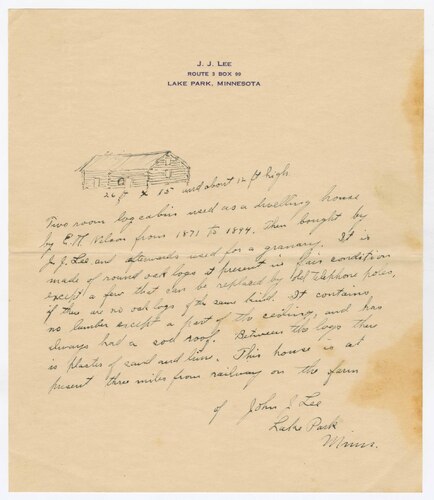 J. J. LEE
ROUTE 3 BOX 99
LAKE PARK, MINNESOTA
26 ft x 15 and about 12 ft high.
Two room log cabin used as a dwelling house
by E. N. Nelson from 1871 to 1894, then bought by
J. J. Lee and afterwards used for a granary. It is
made of round oak logs at present in fair condition
except a few that can be replaced by old telephone poles,
if there are no oak logs of the same kind. It contains
no lumber except a part of the ceiling, and has
always had a sod roof. Between the logs there
is plaster of sand and lime. This house is at
present three miles from railway on the farm
of John J. Lee
Lake Park
Minn.